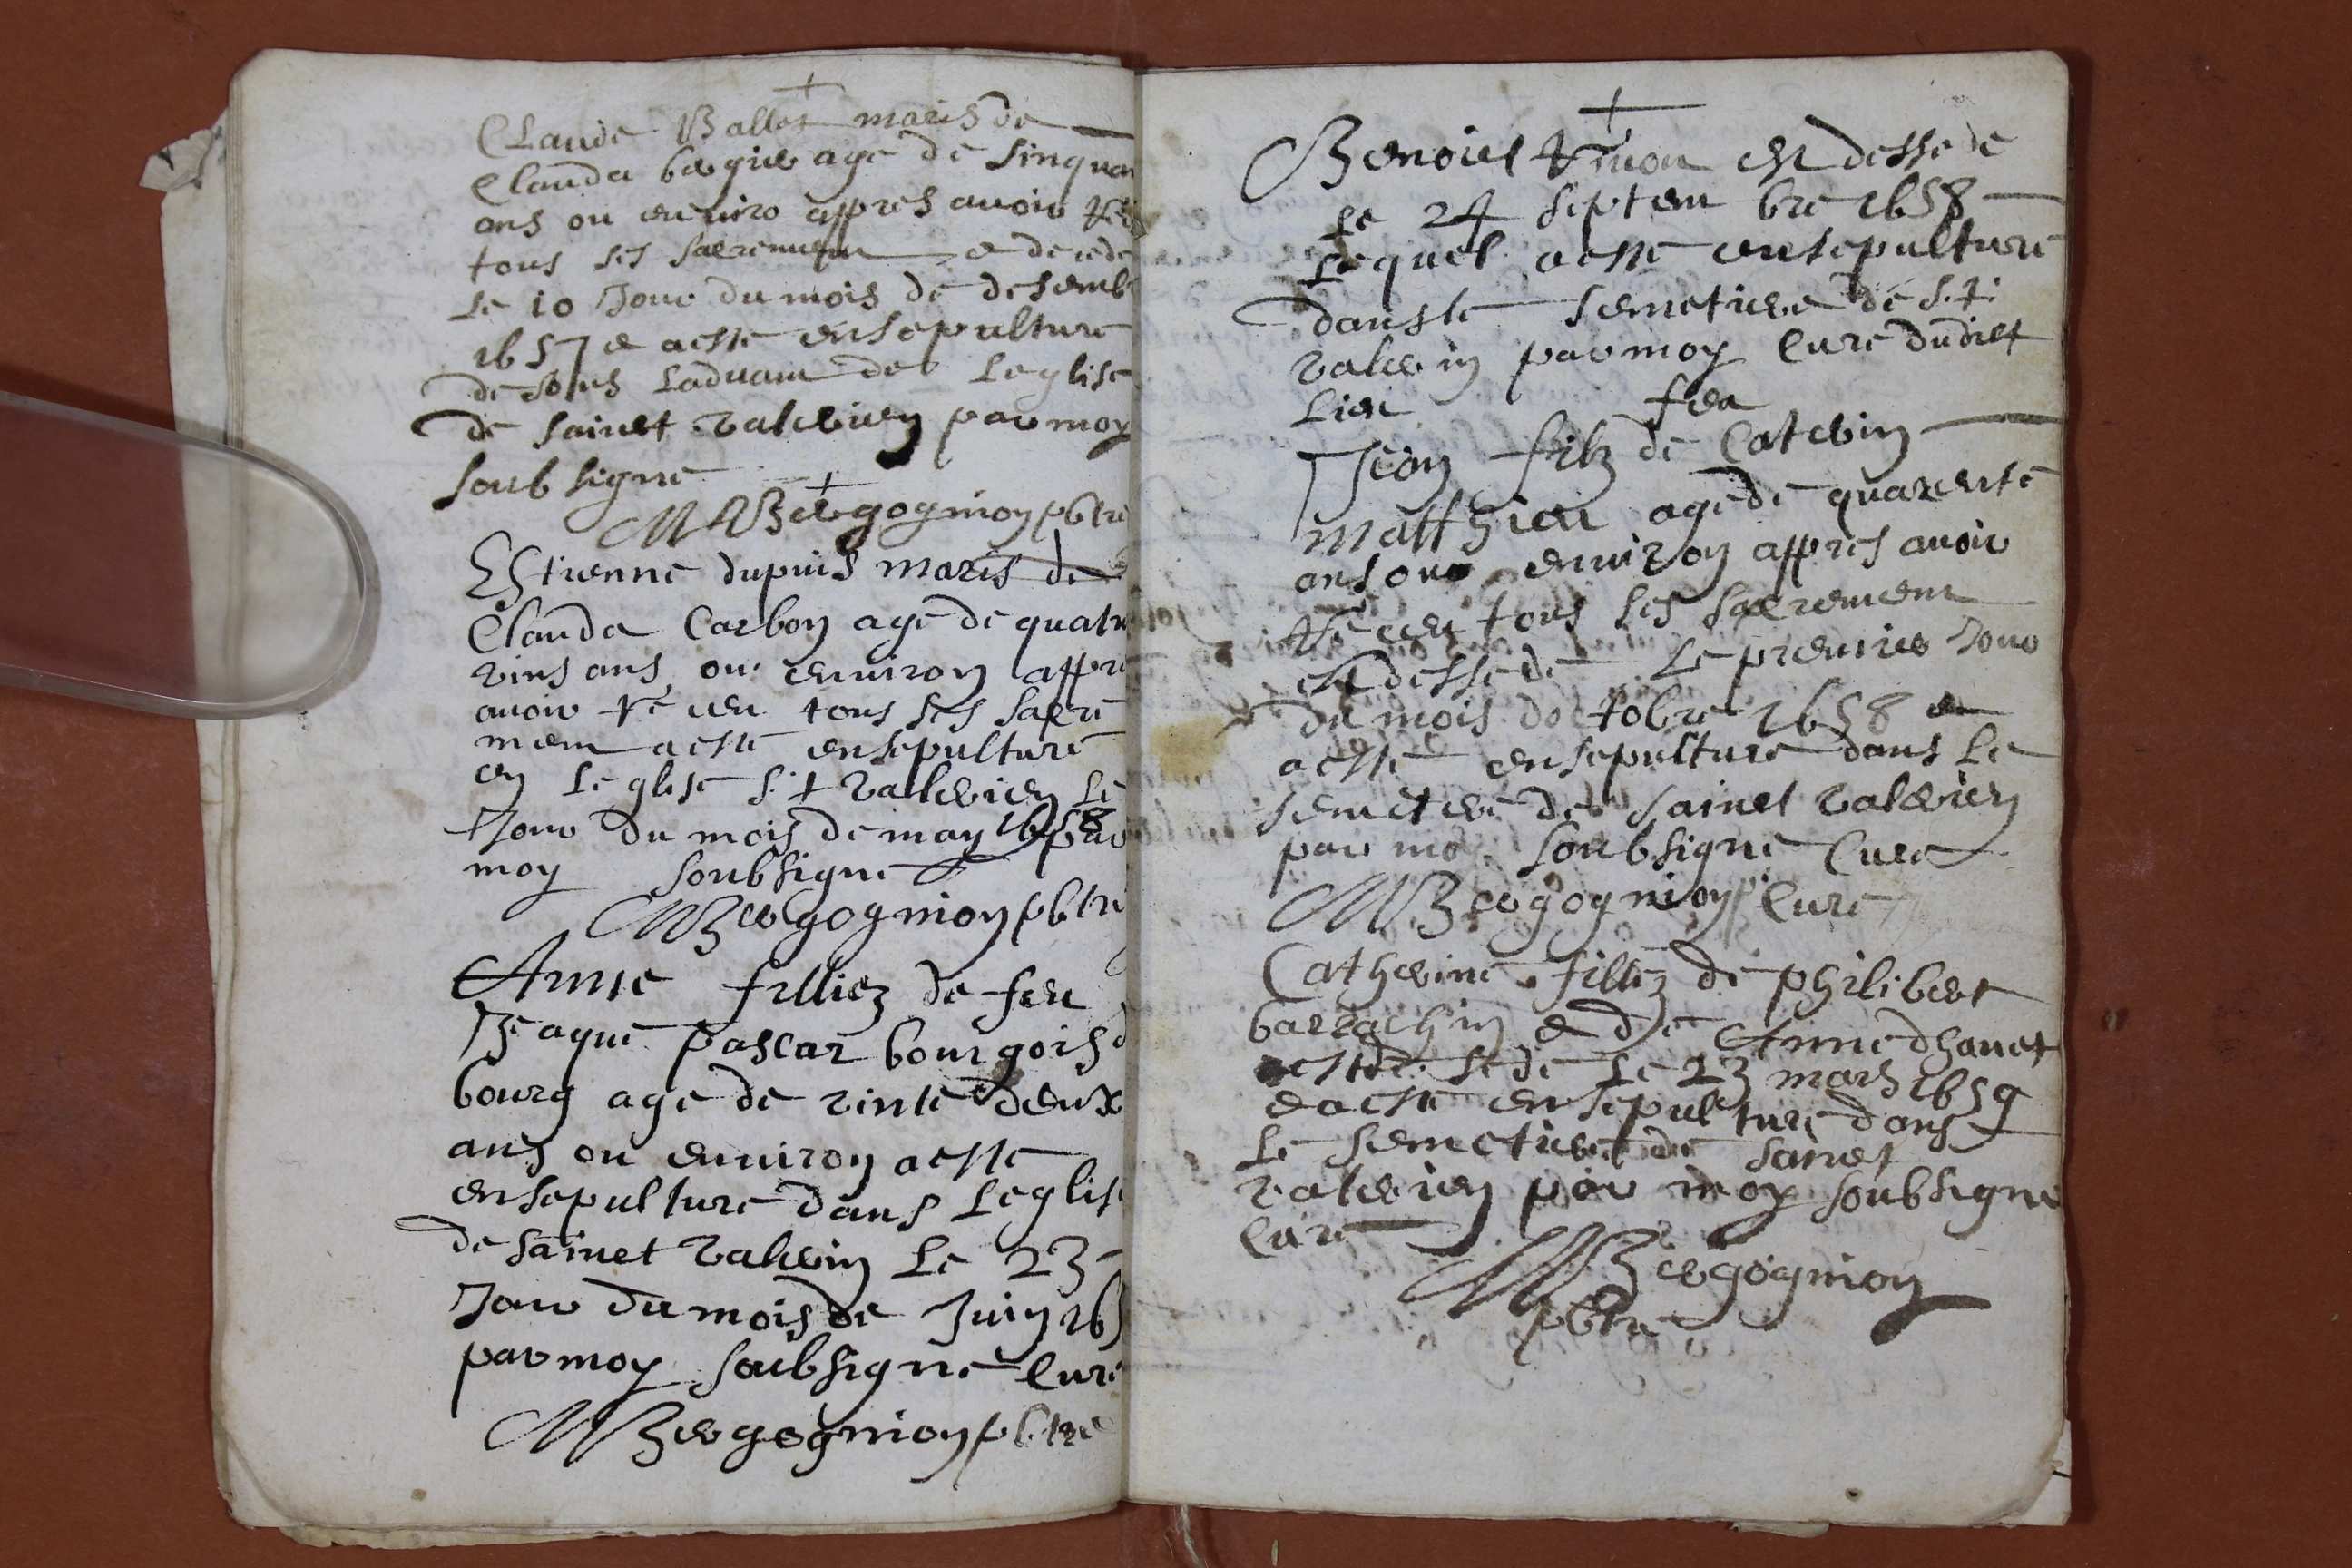 Claude Ballet maris de
Clauda bergier age de sinquan
ans ou enviro appres avoir
tous ses sacrement e decede
Le 10 Jour du mois de desemb
1657 e a este ensepulture
de sous Ladvant de Leglise
de sainct valerien par moy
soubsigne
M Bergognion pbtre
Estienne dupuis maris de
Clauda Carbon age de quatr
vins ans ou environ appre
avoir receu tous ses sacre
ment a este ensepulture
en Leglise S.t valerien Le
Jour du mois de may 1658 par
moy soubsigne
M Bergognion pbtre
Anne filliez de feu
Jeaque pascar bourgois d
bourg age de vinte deux
ans ou environ a este
ensepulture dans Leglise
de sainct valerin Le 23
Jour du mois de Juin 165
par moy soubsigne Cure
M Bergognion pbtre
Benoict est dessede
Le 24 septembre 1658
Lequel a este ensepulture
dans le semetiere de S.t
valerin par moy Cure dudict
Lieu
feu
Jean filz de Caterin
Matthieu age de quarente
ans ou environ appres avoir
receu tous ses sacrement
est dessede Le premier Jour
du mois doctobre 1658 e
a este ensepulture dans Le
semetere de sainct valerien
par moy soubsigne Cure
M Bergognion Cure
Catherine filliz de philibert
barrachin e de Anne dhanet
est dessede Le 23 mars 1659
e a este ensepulture dans
Le semetiere de sainct
valerien par moy soubsigne
Cure
M Bergognion
pbtre